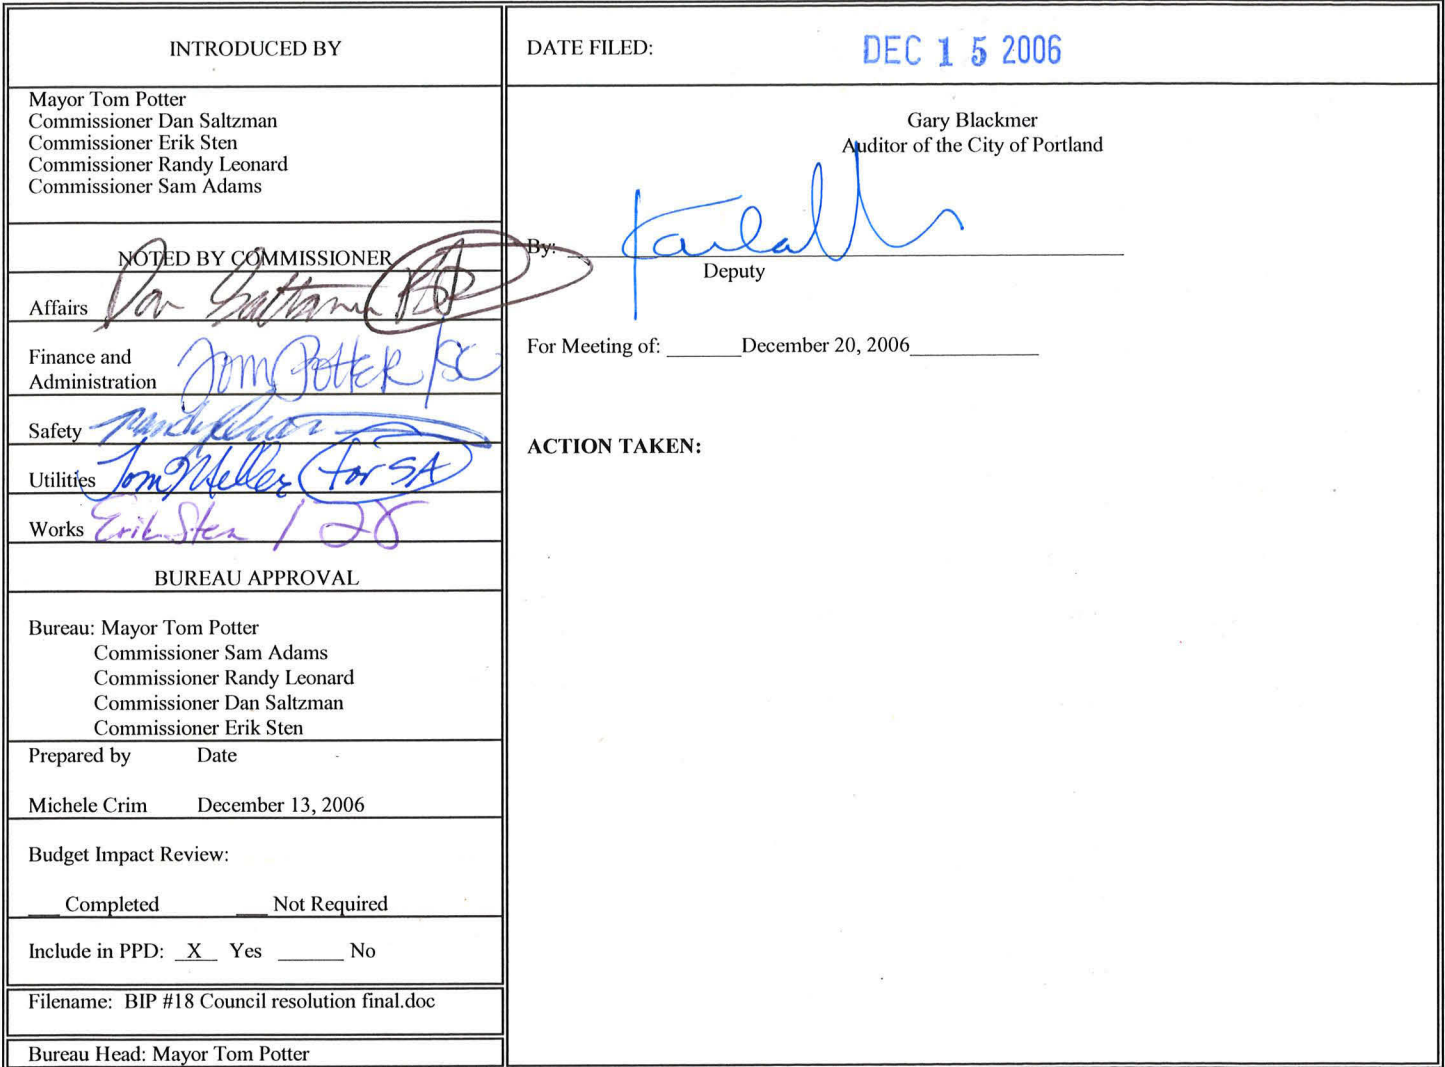 INTRODUCED BY
Mayor Tom Potter
Commissioner Dan Saltzman
Commissioner Erik Sten
Commissioner Randy Leonard
Commissioner Sam Adams
NOTED BY COMMISSIONER
Affairs Dan Saltzman
Finance and
Administration Tom Potter/SC
Safety Randy Leonard
Utilities Tom Miller (for SA)
Works Erik Sten /
BUREAU APPROVAL
Bureau: Mayor Tom Potter
Commissioner Sam Adams
Commissioner Randy Leonard
Commissioner Dan Saltzman
Commissioner Erik Sten
Prepared by Date
Michele Crim December 13, 2006
Budget Impact Review:
___ Completed ___ Not Required
Include in PPD: X Yes ______ No
Filename: BIP #18 Council resolution final.doc
Bureau Head: Mayor Tom Potter
DATE FILED: DEC 15 2006
Gary Blackmer
Auditor of the City of Portland
By:
Deputy
For Meeting of: _______December 20, 2006____________
ACTION TAKEN: